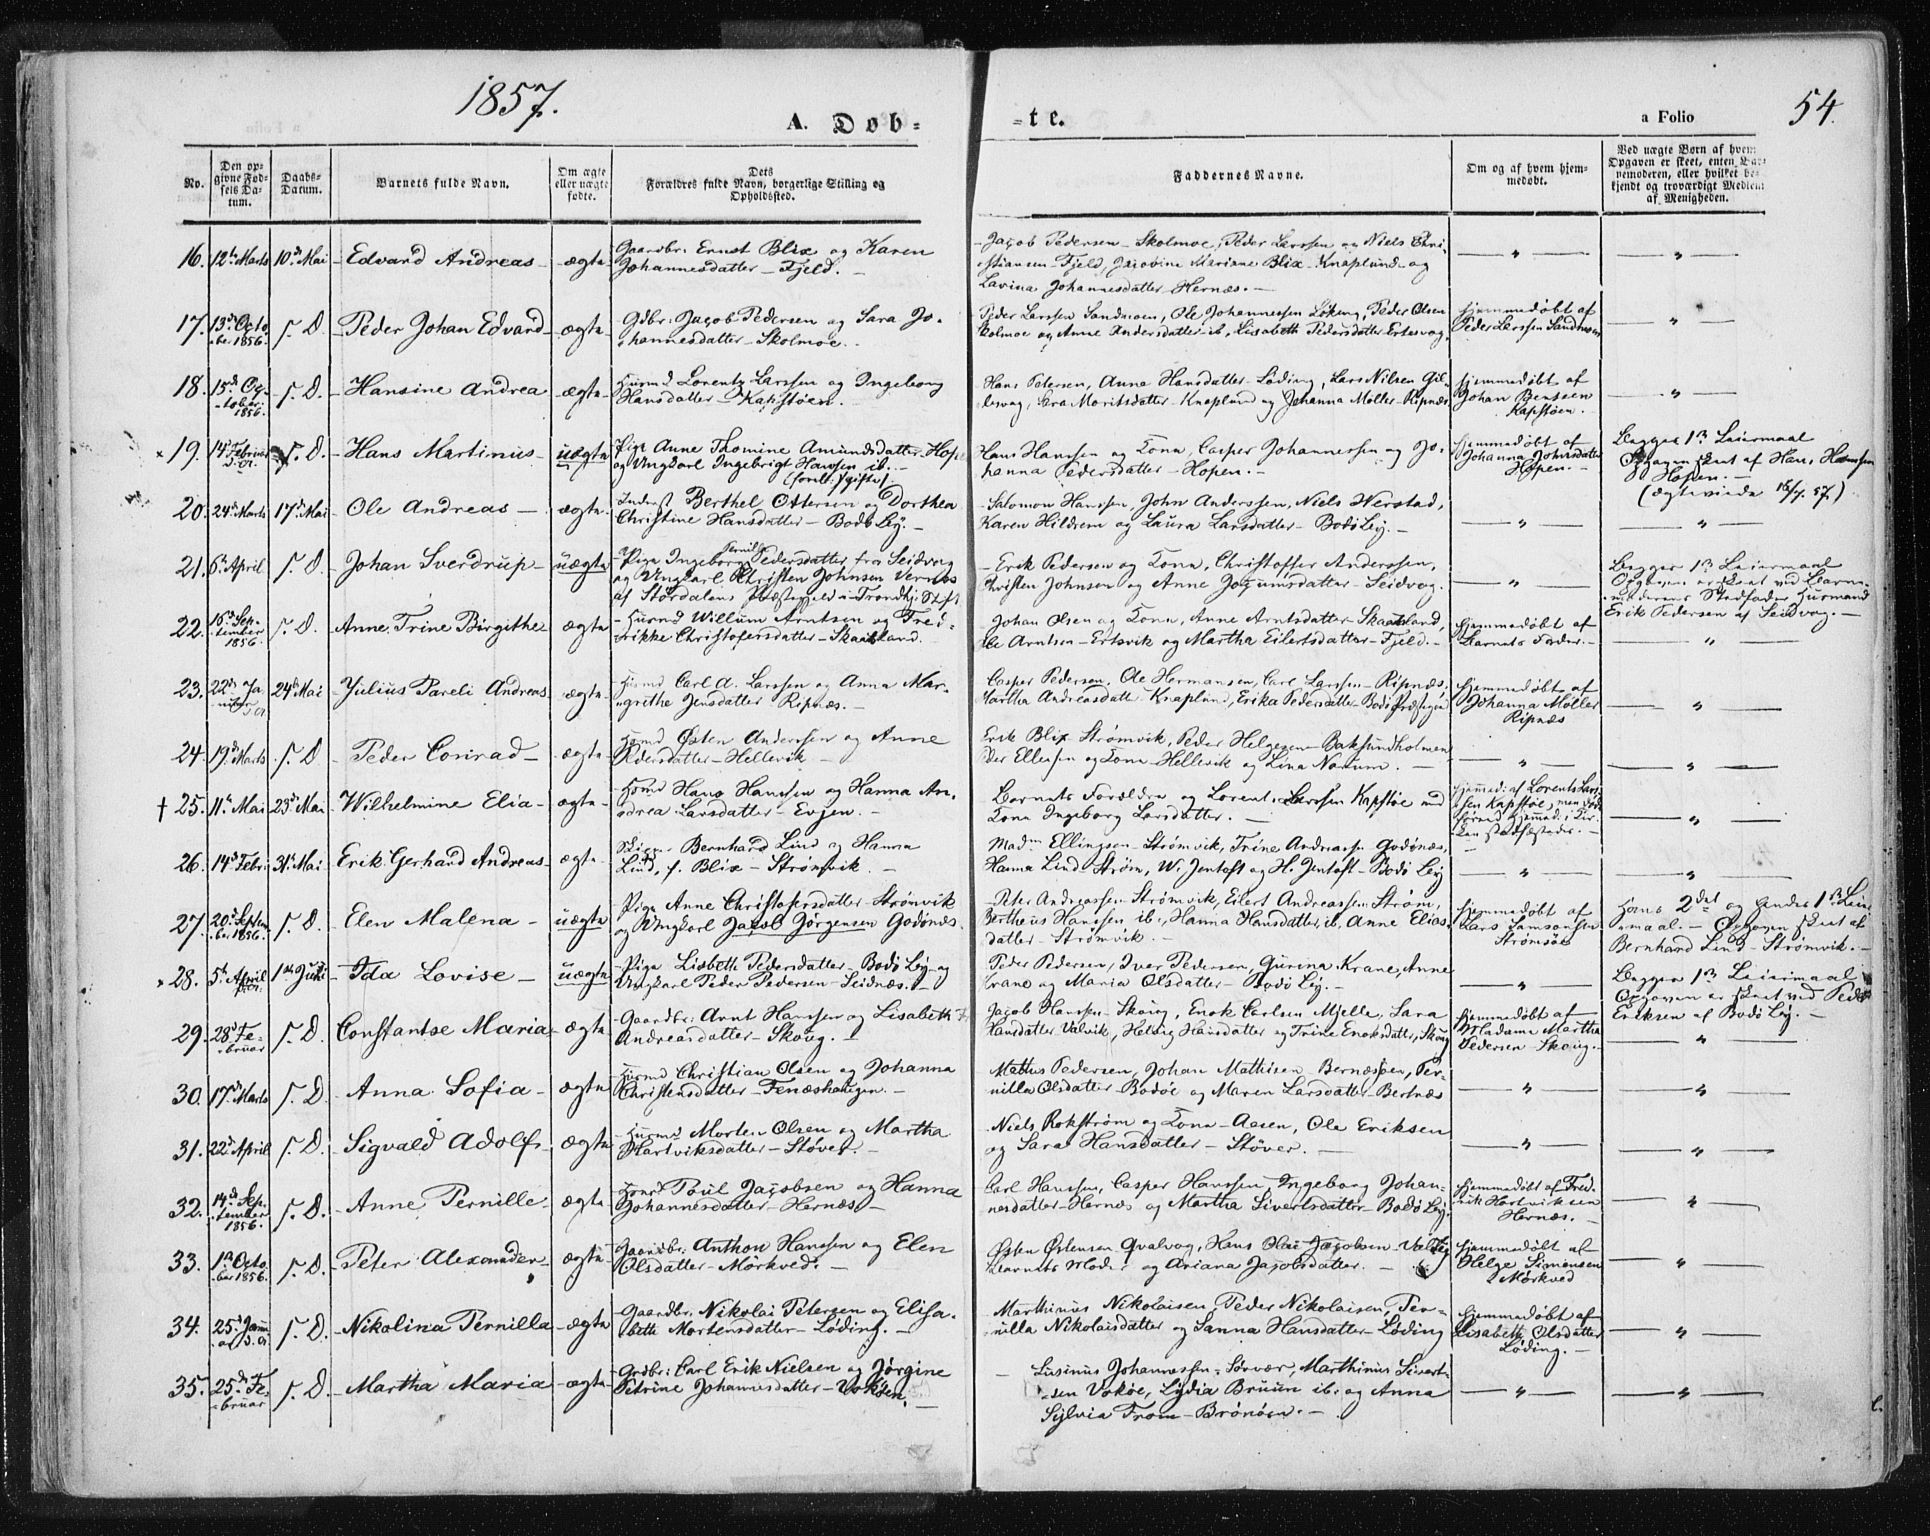 1857.
A. Døb-
-te.
a Folio
54.
No.
Den opgivne Fødsels Datum.
Daabs-Datum.
Barnets fulde Navn.
Om ægte eller uægte fødte.
Dets Forældres fulde Navn, borgerlige Stilling og Opholdssted.
Faddernes Navne.
Om og af hvem hjemmedøbt.
Ved uægte Børn af hvem Opgaven er skeet, enten Barnemoderen, eller hvilket bekjendt og troværdigt Medlem af Menigheden.
16. 12te Marts 10de Mai Edvard Andreas ægte
Gaardbr: Ernst Blix og Karen
Johannesdatter - Fjeld.
Jacob Pedersen - Skolmoe, Peder Larssen og Niels Chri-
stiansen - Fjeld, Jacobine Mariane Blix - Knaplund og
Lavina Johannesdatter - Hernæs.
17. 13de Octo-
ber 1856. s. D. Peder Johan Edvard ægte
Gdbr: Jacob Pedersen og Sara Jo-
hannesdatter - Skolmoe.
Peder Larssen Sandmoen, Ole Johannessen Løding, Peder Olsen
Skolmoe og Anne Andersdatter ib, Lisabeth Pedersdatter Ertesvog.
Hjemmedøbt af
Peder Larssen Sandmoen
18. 15de Oc-
tober 1856. s. D. Hansine Andrea ægte
Huusmd Lorents Larssen og Ingeborg
Hansdatter - Kapstøen.
Hans Petersen, Anna Hansdatter - Løding, Lars Nilsen Gil-
lesvog, Sara Moritsdatter - Knaplund og Johanna Møller - Ripnæs
Hjemmedøbt af
Johan Benssen
Kapstøen.
× 19. 14de Februar
d. A. s. D. Hans Martinus uægte
Pige Anne Thomine Amundsdatter - Hopen
og Ungkarl Ingebrigt Hanssen ib.
(forlt. gifte)
Hans Hanssen og Kona, Casper Johannessen og Jo-
hanna Pedersdatter - Hopen.
Hjemmedøbt af
Johanna Johnsdatter
Hopen.
Begges 1ste Leiermaal
Opgaven skeet af Hans Hanssen
Hopen.
(ægteviede 15/7. 57.)
20. 24de Marts 17de Mai Ole Andreas ægte
Inderst Berthel Ottersen og Dorthea
Christine Hansdatter - Bodø Leg.
Salomon Hanssen, John Anderssen, Niels Nerstad,
Karen Hildrem og Laura Larsdatter - Bodø Leg.
21. 6te April s. D. Johan Sverdrup uægte
Pige Ingeborg Pernille Pedersdatter fra Seidvog
og Ungkarl Christen Johnsen Vernæs
af Størdalens Præstegjeld i Trondhj: Stift
Erik Pedersen og Kona, Christoffer Anderssen,
Christen Johnsen og Anne Jocumsdatter - Seidvog.
Begges 1ste Leiermaal
Opgaven er skeet ved Barne-
moderens Stedfader Husmand
Erik Pedersen af Seidvog.
22. 16de Sep-
tember
1856. s. D. Anne Trine Birgithe ægte
Huusmd Willum Arntsen og Fred-
rikke Christofersdatter - Skaatsland.
Johan Olsen og Kona, Anne Arntsdatter Skaatsland,
Ole Arntsen - Ertsvik og Martha Eilertsdatter - Fjeld.
Hjemmedøbt af
Barnets Fader.
23. 22de Ja-
nuar
d. A. 24de Mai Julius Pareli Andreas ægte
Huusmd Carl A. Larssen og Anna Mar-
grethe Jensdatter Ripnæs.
Casper Pedersen, Ole Hermansen, Carl Larssen - Ripnæs,
Martha Andreasdatt. Knaplund, Erika Pedersdatter - Bodø Præstegd
Hjemmedøbt af
Johanna Møller
Ripnæs
24. 19de Marts s. D. Peder Conrad ægte
Huusmd Østen Anderssen og Anne
Pedersdatter - Hellevik
Erik Blix Strømvik, Peder Helgesen - Baksundholmen
Peder Ellefsen og Kona - Hellevik og Lina Norum.
† 25. 11te Mai 23de Mai Wilhelmine Elia ægte
Husmd Hans Hanssen og Hanna An-
drea Larsdatter - Evjen.
Barnets Forældre og Lorents Larssen Kapstøe med
Kona Ingeborg Larsdatter.
Hjemmed: af Lorents Lars-
sen Kapstøe, men Daaben
stadfæstedes.
26. 14de Febr: 31te Mai Erik Gerhard Andreas ægte
Bernhard Lind og Hanna
Lind, f. Blix - Strømvik.
Madm Ellingsen - Strømvik, Trine Andreassen Godønæs,
Hanna Lind Strøm, W. Jentoft og H. Jentoft - Bodø Leg
27. 20de Septem-
ber 1856. s. D. Elen Malena uægte
Pige Anne Christofersdatter - Strømvik
og Ungkarl Jacob Jørgensen Godønæs.
Peter Andreassen - Strømvik, Eilert Andreassen - Strøm,
Bertheus Hanssen ib., Hanna Hansdatter ib, Anne Elias-
datter - Strømvik.
Hjemmedøbt af
Lars Samsonsen
Strømsøe
Hans 2det og Andres 1ste Leier-
maal. - Opgaven skeet af
Bernhard Lind - Strømvik.
× 28. 5te April 1ste Juni Ida Lovise uægte
Pige Lisbeth Pedersdatter - Bodø Leg og
Ungkarl Peder Pedersen - Seidnæs.
Peder Pedersen, Iver Pedersen, Gurina Krane, Anne
Krane og Maria Olsdatter - Bodø Leg.
Begges 1ste Leiermaal
Opgaven er skeet ved Peder
Eriksen af Bodø Leg.
29. 28de Fe-
bruar s. D. Constantse Maria ægte
Gaardbr: Arnt Hanssen og Lisabeth
Andreasdatter - Skoug.
Jacob Hanssen - Skoug, Enok Carlsen Mjelle, Sara
Hansdatter Valvik, Helvig Hansdatter og Trine Enoksdatter, Skoug
Hjemmedøbt af
Madame Martha
Pedersen Skoug.
30. 17de Marts s. D. Anna Sofia ægte
Huusmd Christian Olsen og Johanna
Christensdatter - Fenæshaugen.
Mathis Pedersen, Johan Mathisen Bernæsøen, Per-
nilla Olsdatter - Bodøe og Maren Larsdatter - Bertnæs
31. 22de April s. D. Sigvald Adolf ægte
Huusmd Morten Olsen og Martha
Hartviksdatter - Støver.
Niels Rokstrøm og Kona - Aasen, Ole Eriksen
og Sara Hansdatter - Støver.
32. 14de Sep-
tember
1856. s. D. Anne Pernille ægte
Husmd Poul Jacobsen og Hanna
Johannesdatter - Hernæs
Carl Hanssen, Casper Hanssen, Ingeborg Johan-
nesdatter - Hernæs og Martha Sivertsdatter - Bodø Leg.
Hjemmedøbt af Fred-
rik Hartviksen
Hernæs.
33. 1ste Octo-
ber 1856. s. D. Peter Alexander ægte
Gaardbr: Anthon Hanssen og Elen
Olsdatter - Mørkved.
Østen Østensen - Qvalvog, Hans Jacobsen - Valvig
Barnets Moder og Ariana Jacobsdatter.
Hjemmedøbt af
Helge Simonsen
Mørkved
34. 25de Janu-
ar d. A. s. D. Nikolina Pernilla ægte
Gaardbr: Nikolai Petersen og Elisa-
beth Mortensdatter - Løding.
Marthinus Nikolaisen, Peder Nikolaisen, Per-
nilla Nikolaisdatter og Sanna Hansdatter - Løding
Hjemmedøbt af
Lisabeth Olsdatter
Løding.
35. 25de Fe-
bruar s. D. Martha Maria ægte
Grdbr: Carl Erik Nielsen og Jørgine
Petrine Johannesdatter - Vokøen.
Lusinus Johannessen - Sørvær, Marthinus Sivert-
sen Vokøe, Lydia Bruun ib: og Anna
Sylvia From - Brønøen.